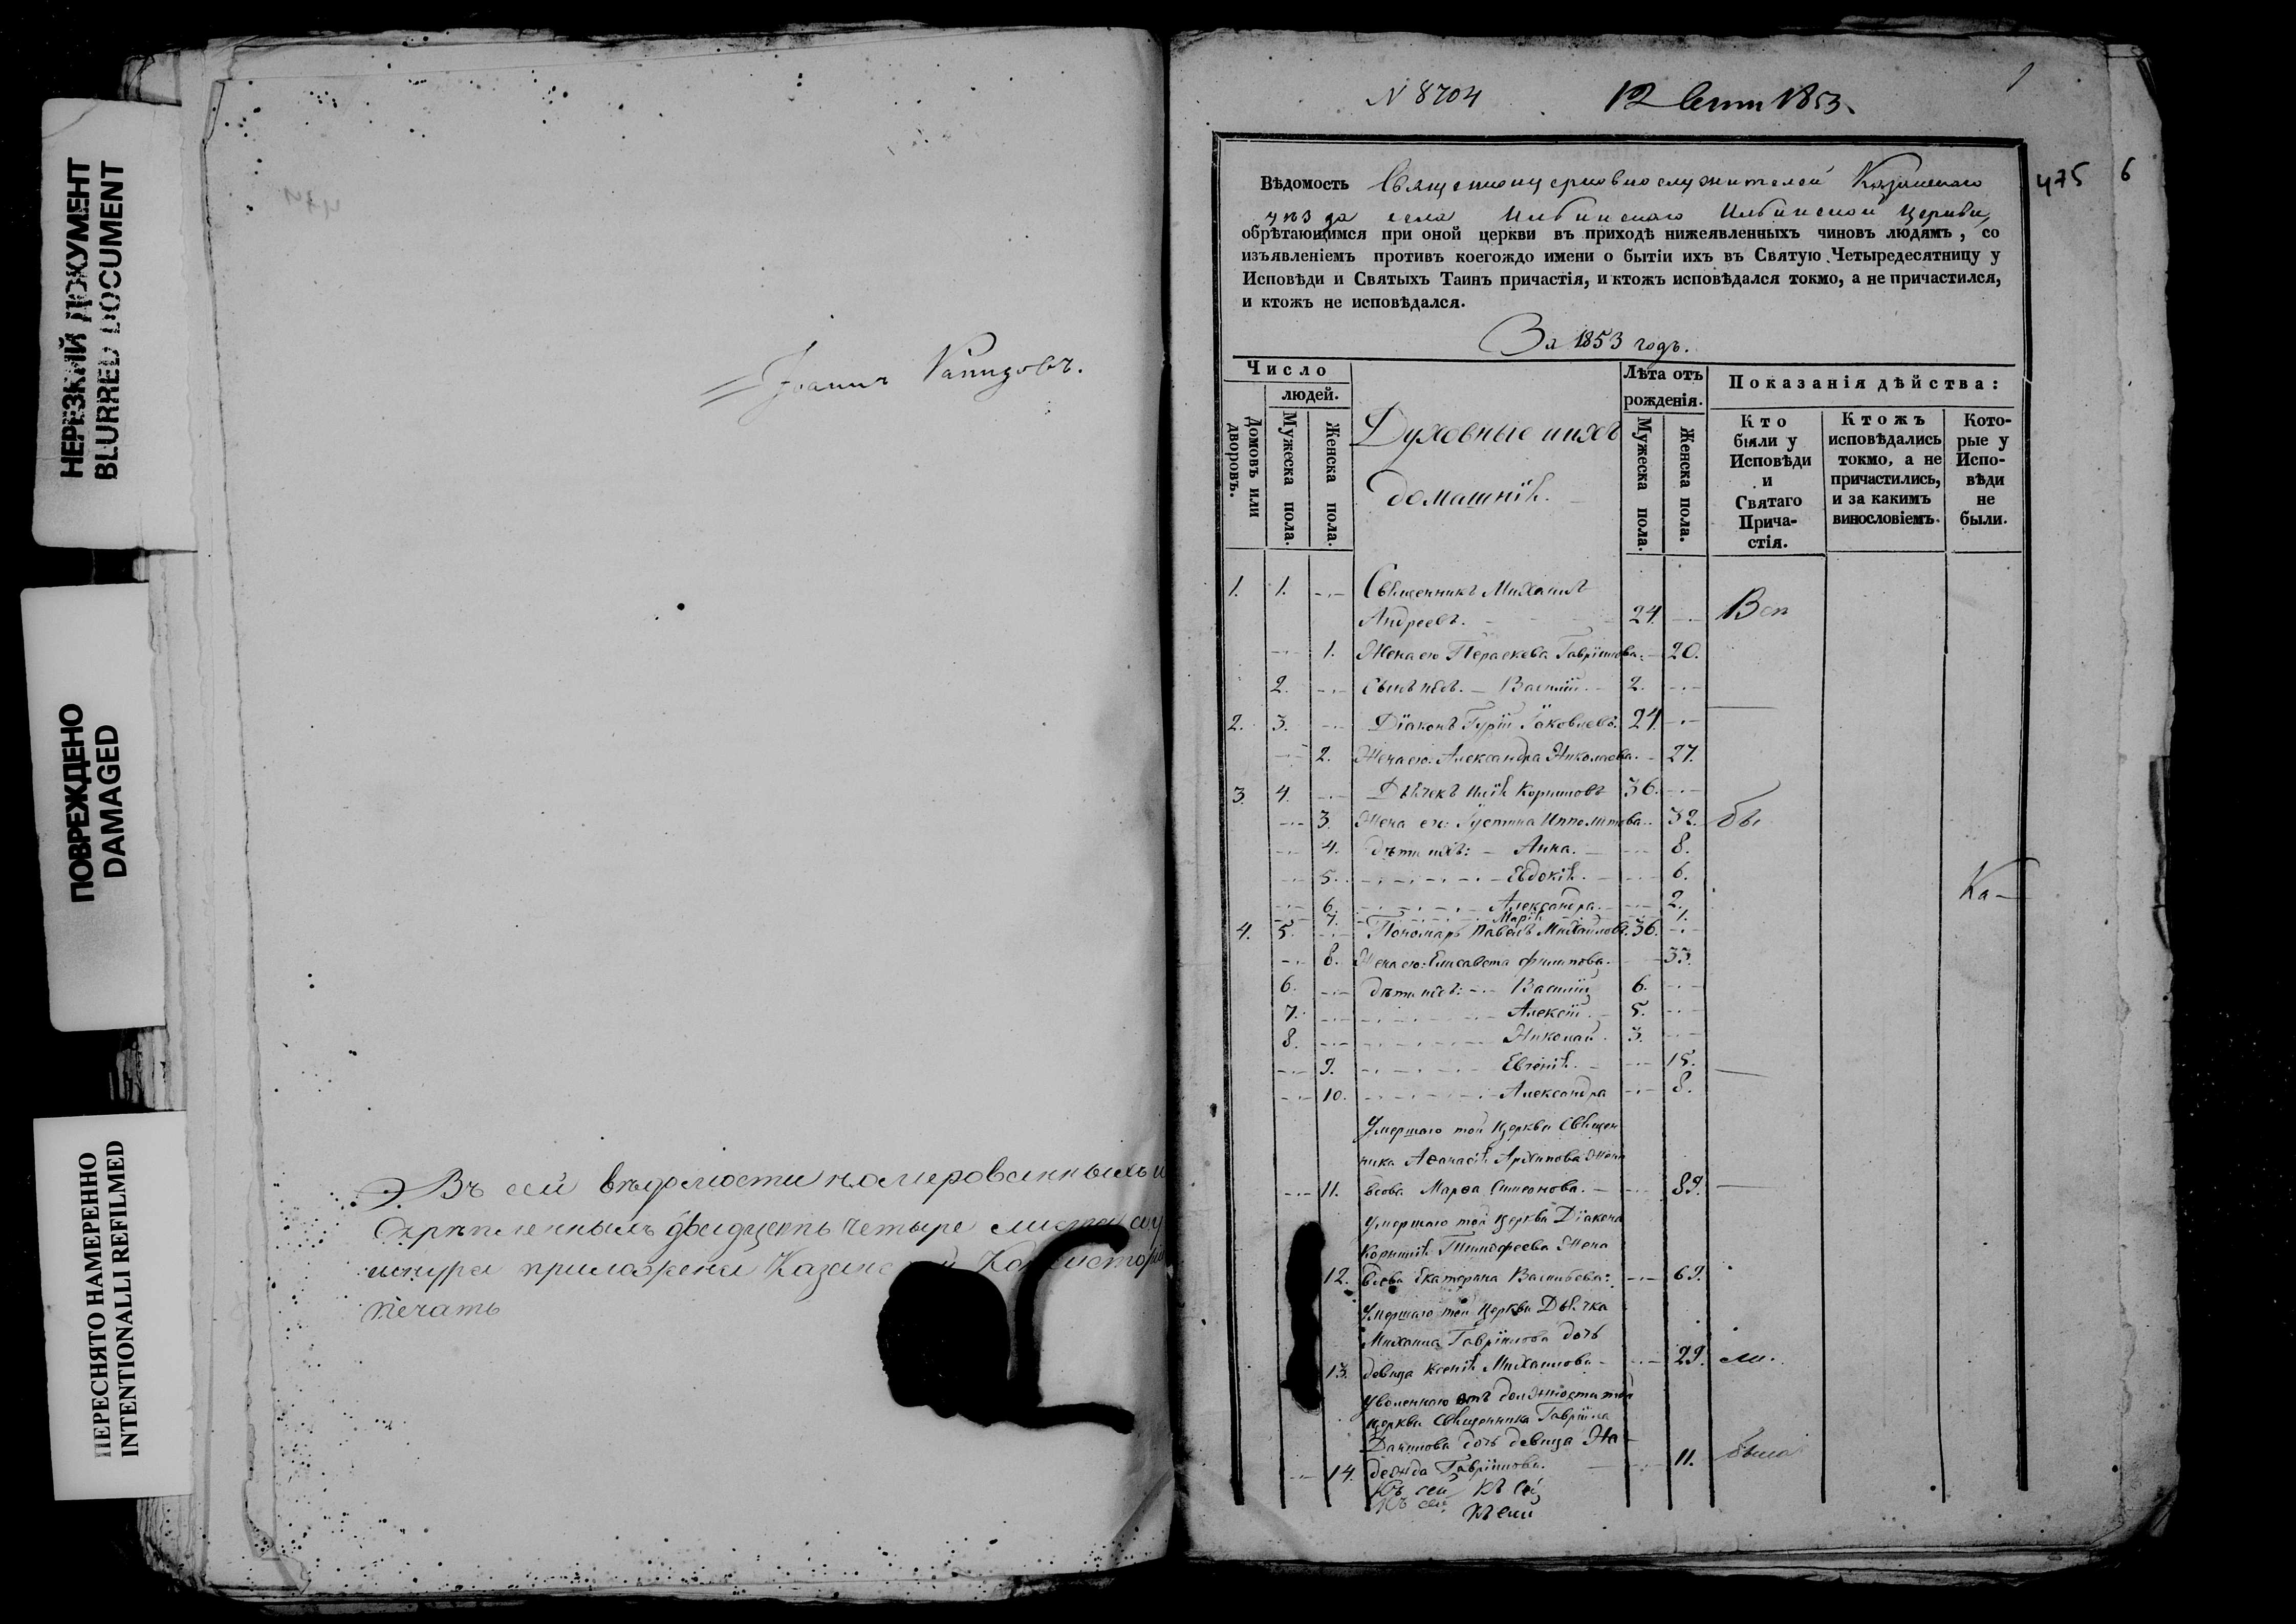 НЕРЕЗКИЙ ДОКУМЕНТ
BLURRED DOCUMENT
ПОВРЕЖДЕНО
DAMAGED
ПЕРЕСНЯТО НАМЕРЕННО
INTENTIONALLI REFILMED
Іоаннъ
Въ сей вѣдомости номерованныхъ и
скрѣпленныхъ двадцать четыре листа
шнура приложена Казанс
печать
N 8704 12 Сент 1853.
1
475 6
Вѣдомость Священноцерковнослужителей Казанскаго
уѣзда села Ильинскаго Ильинской церкви,
обрѣтающимся при оной церкви въ приходѣ нижеявленныхъ чиновъ людямъ, со
изъявленіемъ противъ коегождо имени о бытіи ихъ въ Святую Четыредесятницу у
Исповѣди и Святыхъ Таинъ причастія, и ктожъ исповѣдался токмо, а не причастился,
и ктожъ не исповѣдался.
За 1853 годъ.
Число
людей.
Домовъ или дворовъ.
Мужеска пола.
Женска пола.
Духовные и ихъ
домашнія.
Лѣта отъ
рожденія.
Мужеска пола.
Женска пола.
Показанія дѣйства:
Кто
были у
Исповѣди
и
Святаго
Прича-
стія.
Ктожъ
исповѣдались
токмо, а не
причастились,
и за какимъ
винословіемъ.
Кото-
рые у
Испо-
вѣди
не
были.
1. 1. Священникъ Михаилъ
Андреевъ. 24. Вси
1. Жена его Параскева Гавріилова. 20.
2. Сынъ ихъ. Василій. 2.
2. 3. Діаконъ Гурій Іаковлевъ. 24.
2. Жена его: Александра Николаева. 27.
3. 4. Дьячекъ Илія Корниловъ 36.
3. Жена его: Іустина Ипполитова. 32. бы
4. дѣти ихъ: Анна. 8.
5. Евдокія. 6.
6. Александра. 2. Ка
7. Марія 1.
4. 5. Пономарь Павелъ Михайловъ. 36.
8. Жена его: Елисавета Филипова. 33.
6. дѣти ихъ: Василій 6.
7. Алексій. 5.
8. Николай. 3.
9. Евгенія. 15.
10. Александра 8.
Умершаго той церкви Священ
ника Аѳанасія Архипова жена
11. вдова Марѳа Симеонова. 89.
Умершаго той церкви Діакона
Корнилія Тимофеева жена
12. вдова Екатерина Васильева. 69.
Умершаго той церкви Дьячка
Михаила Гавріилова дочь
13. девица Ксенія Михаилова 29. ли.
Уволеннаго отъ должности той
церкви Священника Гавріила
Данилова дочь девица На
14. дежда Гавріилова. 11. была
Къ сей Къ сей
Къ сей
Къ сей